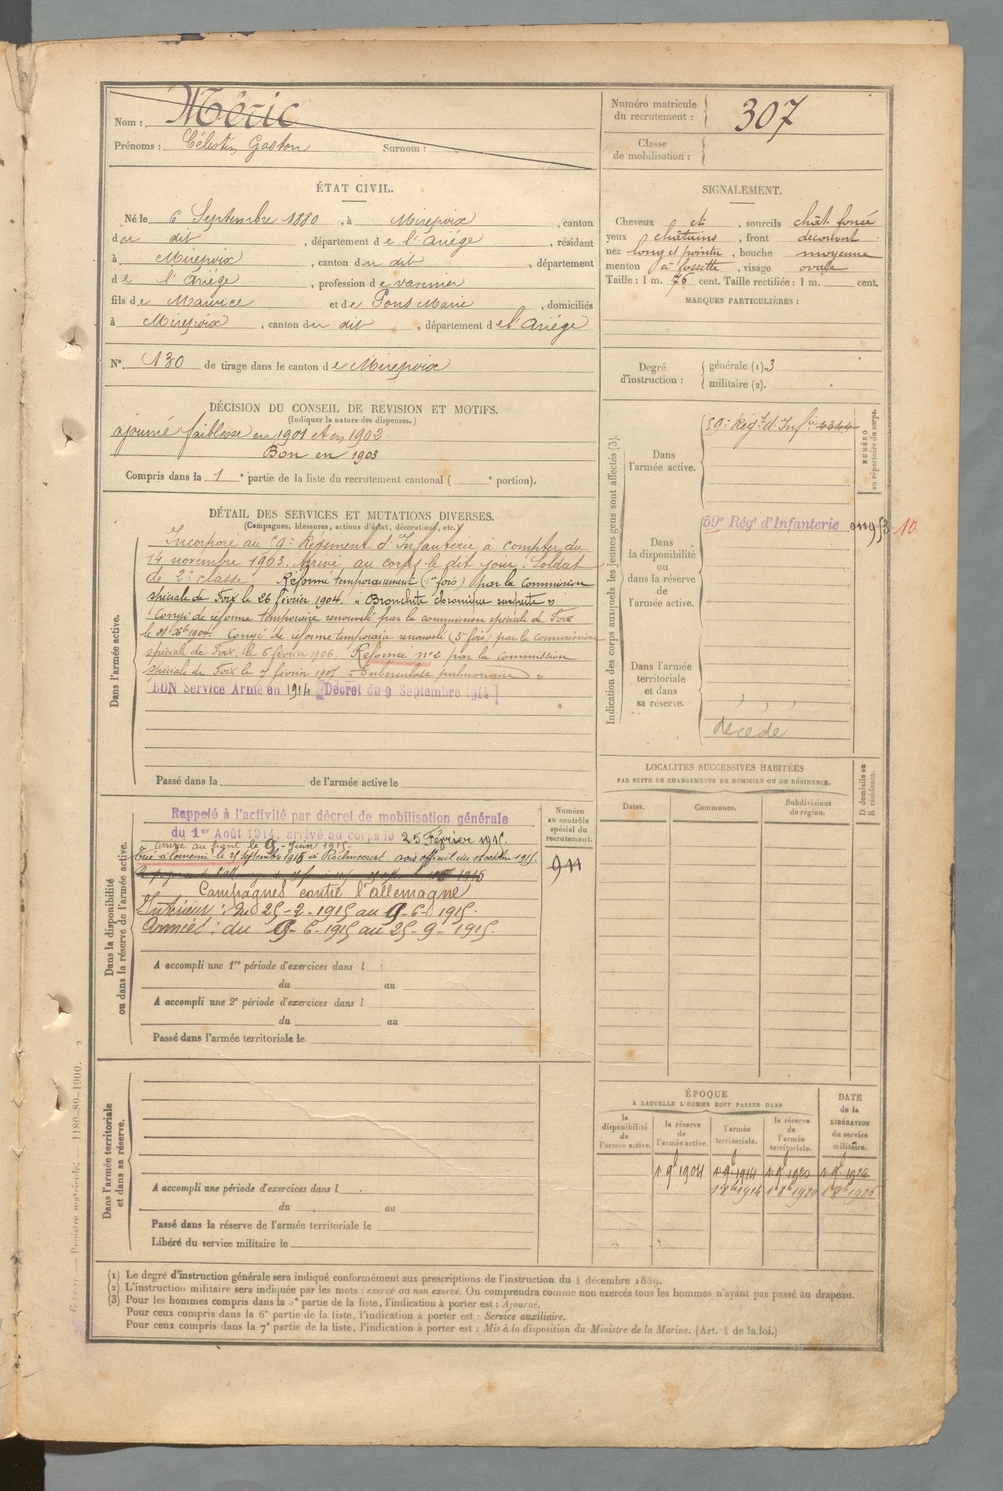 Nom : Méric
Prénoms : Célestin, Gaston Surnom :
Numéro matricule
du recrutement : 307
Classe
de mobilisation :
ÉTAT CIVIL.
Né le 6 Septembre 1880, à Mirepoix, canton
du dit, département de l'Ariége, résidant
à Mirepoix, canton du dit, département
de l'Ariége, profession de vannier
fils de Maurice et de Pons Marie, domiciliés
à Mirepoix, canton du dit, département de l'Ariége
N° 130 de tirage dans le canton de Mirepoix
SIGNALEMENT.
Cheveux et, sourcils chât foncé
yeux châtains, front découvert
nez long et pointu, bouche moyenne
menton à fossette, visage ovale
Taille : 1 m. 76 cent. Taille rectifiée : 1 m. cent.
MARQUES PARTICULIÈRES :
Degré
d'instruction :
générale (1) 3
militaire (2).
DÉCISION DU CONSEIL DE REVISION ET MOTIFS.
(Indiquer la nature des dispenses.)
ajourné faiblesse en 1901 et en 1902
Bon en 1903
Compris dans la 1e partie de la liste du recrutement cantonal ( e portion).
DÉTAIL DES SERVICES ET MUTATIONS DIVERSES.
(Campagnes, blessures, actions d'éclat, décorations, etc.)
Dans l'armée active.
Incorporé au 59e Régiment d'Infanterie à compter du
14 novembre 1903. Arrivé au corps le dit jour. Soldat
de 2e classe. Réformé temporairement (1re fois) par la commission
spéciale de Foix le 26 février 1904. « Bronchite chronique suspecte »
Congé de réforme temporaire renouvelé par la commission spéciale de Foix
le 1904. Congé de réforme temporaire renouvelé (5e fois) par la commission
spéciale de Foix, le 6 février 1906. Réformé n°2 par la commission
spéciale de Foix le 7 février 1907 « Tuberculose pulmonaire »
BON Service Armé en 1914 [Décret du 9 Septembre 1914]
Passé dans la de l'armée active le
Indication des corps auxquels les jeunes gens sont affectés (3).
NUMÉRO
au répertoire du corps.
Dans
l'armée active.
59e Régt d'Infrie 4344
Dans
la disponibilité
ou
dans la réserve
de
l'armée active.
59e Rég d'Infanterie 01195310
Dans l'armée
territoriale
et dans
sa réserve.
décédé
Dans la disponibilité
ou dans la réserve de l'armée active.
Rappelé à l'activité par décret de mobilisation générale
du 1er Août 1914, arrivé au corps le 25 Février 1915.
Arrivé au front le 9 Juin 1915.
Tué à l'ennemi le 25 septembre 1915 à Roclincourt avis officiel du octobre 1915.
Campagnes contre l'allemagne
Intérieur : du 25-2-1915 au 9-6-1915.
Armées : du 9-6-1915 au 25-9-1915.
A accompli une 1re période d'exercices dans l
du au
A accompli une 2e période d'exercices dans l
du au
Passé dans l'armée territoriale le
Numéro
au contrôle
spécial du
recrutement.
911
LOCALITÉS SUCCESSIVES HABITÉES
PAR SUITE DE CHANGEMENTS DE DOMICILE OU DE RÉSIDENCE.
Dates.
Communes.
Subdivisions
de région.
D domicile ou
R résidence.
Dans l'armée territoriale
et dans sa réserve.
A accompli une période d'exercices dans l
du au
Passé dans la réserve de l'armée territoriale le
Libéré du service militaire le
ÉPOQUE
À LAQUELLE L'HOMME DOIT PASSER DANS
la
disponibilité
de
l'armée active.
la réserve
de
l'armée active.
l'armée
territoriale.
la réserve
de
l'armée
territoriale.
DATE
de la
LIBÉRATION
du service
militaire.
1er 9b 1904 1er 9b 1914 1er 9b 1920 1er 9b 1926
1er 8bre 1914 1er 8bre 1920 1er 8bre 1926
— Registre matricule. — 1180-89-1900.
(1) Le degré d'instruction générale sera indiqué conformément aux prescriptions de l'instruction du 4 décembre 1889.
(2) L'instruction militaire sera indiquée par les mots : exercé ou non exercé. On comprendra comme non exercés tous les hommes n'ayant pas passé au drapeau.
(3) Pour les hommes compris dans la 5e partie de la liste, l'indication à porter est : Ajourné.
Pour ceux compris dans la 6e partie de la liste, l'indication à porter est : Service auxiliaire.
Pour ceux compris dans la 7e partie de la liste, l'indication à porter est : Mis à la disposition du Ministre de la Marine. (Art. 4 de la loi.)